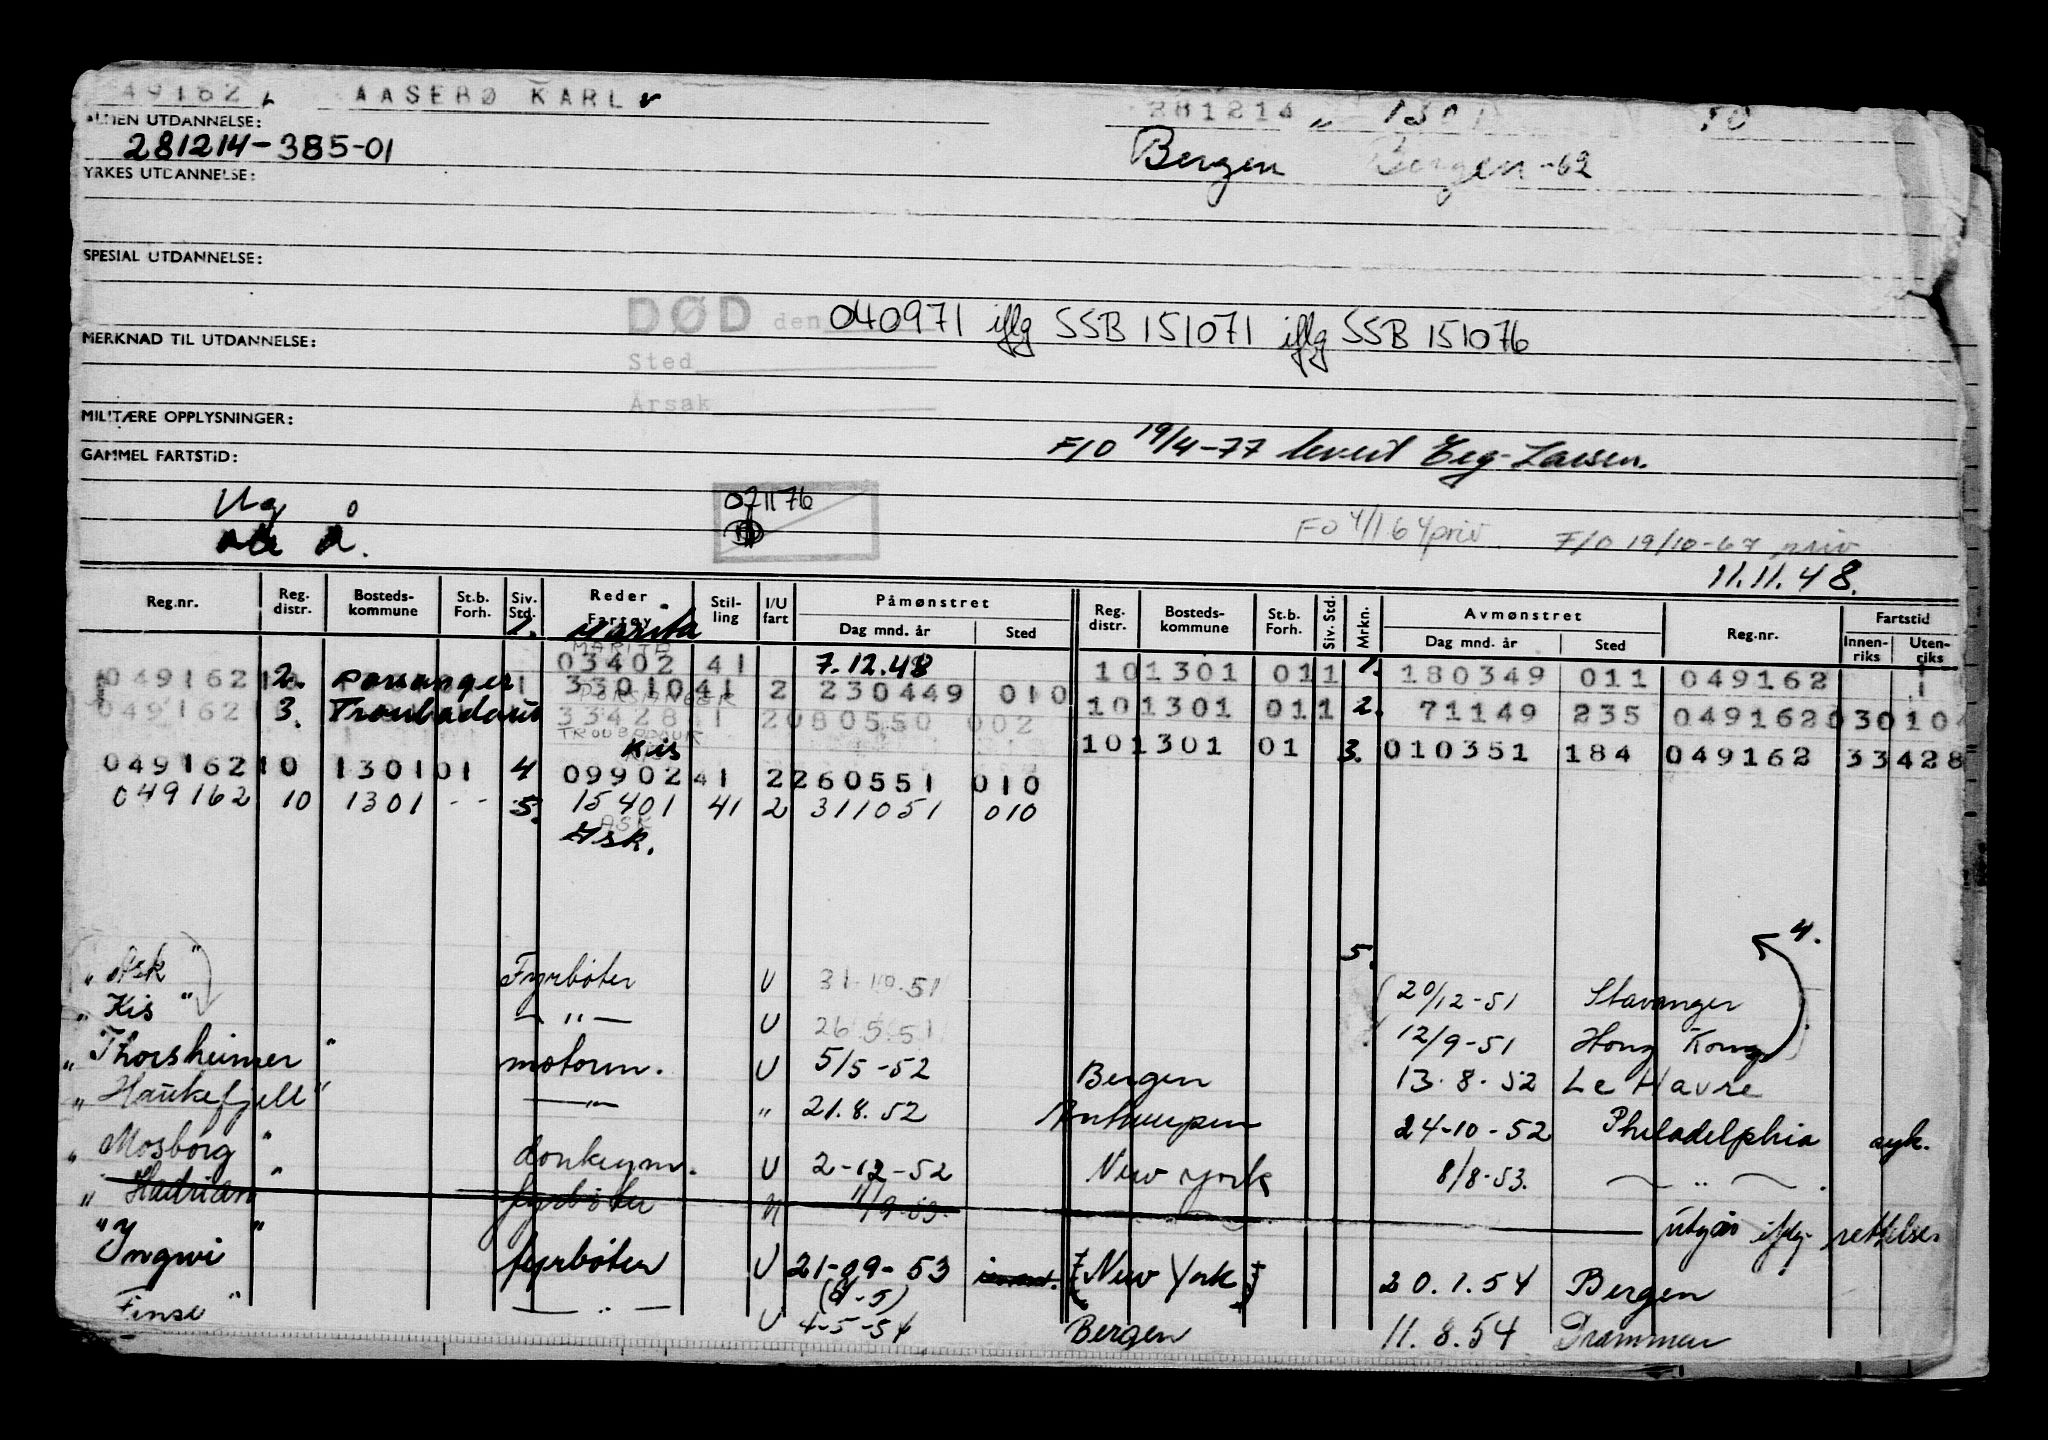 49162 AASEBØ KARL 281214 1301
ALMEN UTDANNELSE:
281214-385-01 Bergen Bergen -62
YRKES UTDANNELSE:
SPESIAL UTDANNELSE:
DØD den 040971 iflg SSB 151071 iflg SSB 151076
MERKNAD TIL UTDANNELSE:
Sted
Årsak
MILITÆRE OPPLYSNINGER:
F/O 19/4-77 levert Eeg-Larsen.
GAMMEL FARTSTID:
071176
FO 4/1 64 priv F/O 19/10-67 priv
11.11.48.
Reg.nr. Reg. distr. Bosteds-kommune St.b. Forh. Siv. Std. Reder Fartøy Stil-ling I/U fart Påmønstret Dag mnd. år Sted Reg. distr. Bosteds-kommune St.b. Forh. Siv. Std. Mrkn. Avmønstret Dag mnd. år Sted Reg.nr. Fartstid Innen-riks Uten-riks
1. Marita
MARITA
03402 41 7.12.48 101301 011 1. 180349 011 049162 1
049162 10 2. Porsanger 1 33010 41 2 230449 010 101301 011 2. 71149 235 049162 030104
PORSANGER
049162 1 3. Troubadour 33428 41 2 080550 002
TROUBADOUR
101301 01 3. 010351 184 049162 33428
Kis
049162 10 1301 01 4 09902 41 2 260551 010
049162 10 1301 -- 5. 15401 41 2 311051 010
ASK
Ask.
4.
5.
" Ask " Fyrbøter U 31.10.51 20/12-51 Stavanger
" Kis " — " — U 26.5.51 12/9-51 Hong Kong
" Thorsheimer " motorm. U 5/5-52 Bergen 13.8.52 Le Havre
" Haukefjell " — " — " 21.8.52 Antwerpen 24-10-52 Philadelphia syk.
" Mosborg " donkeym. U 2-12-52 New York 8/8-53. — " — .
" Hadrian " fyrbøter 11/9-53. utgår iflg. rettelse
" Yngwi " fyrbøter U 21-09-53 (New York) 20.1.54 Bergen
Finse " — " — U 4-5-54 Bergen 11.8.54 Drammen